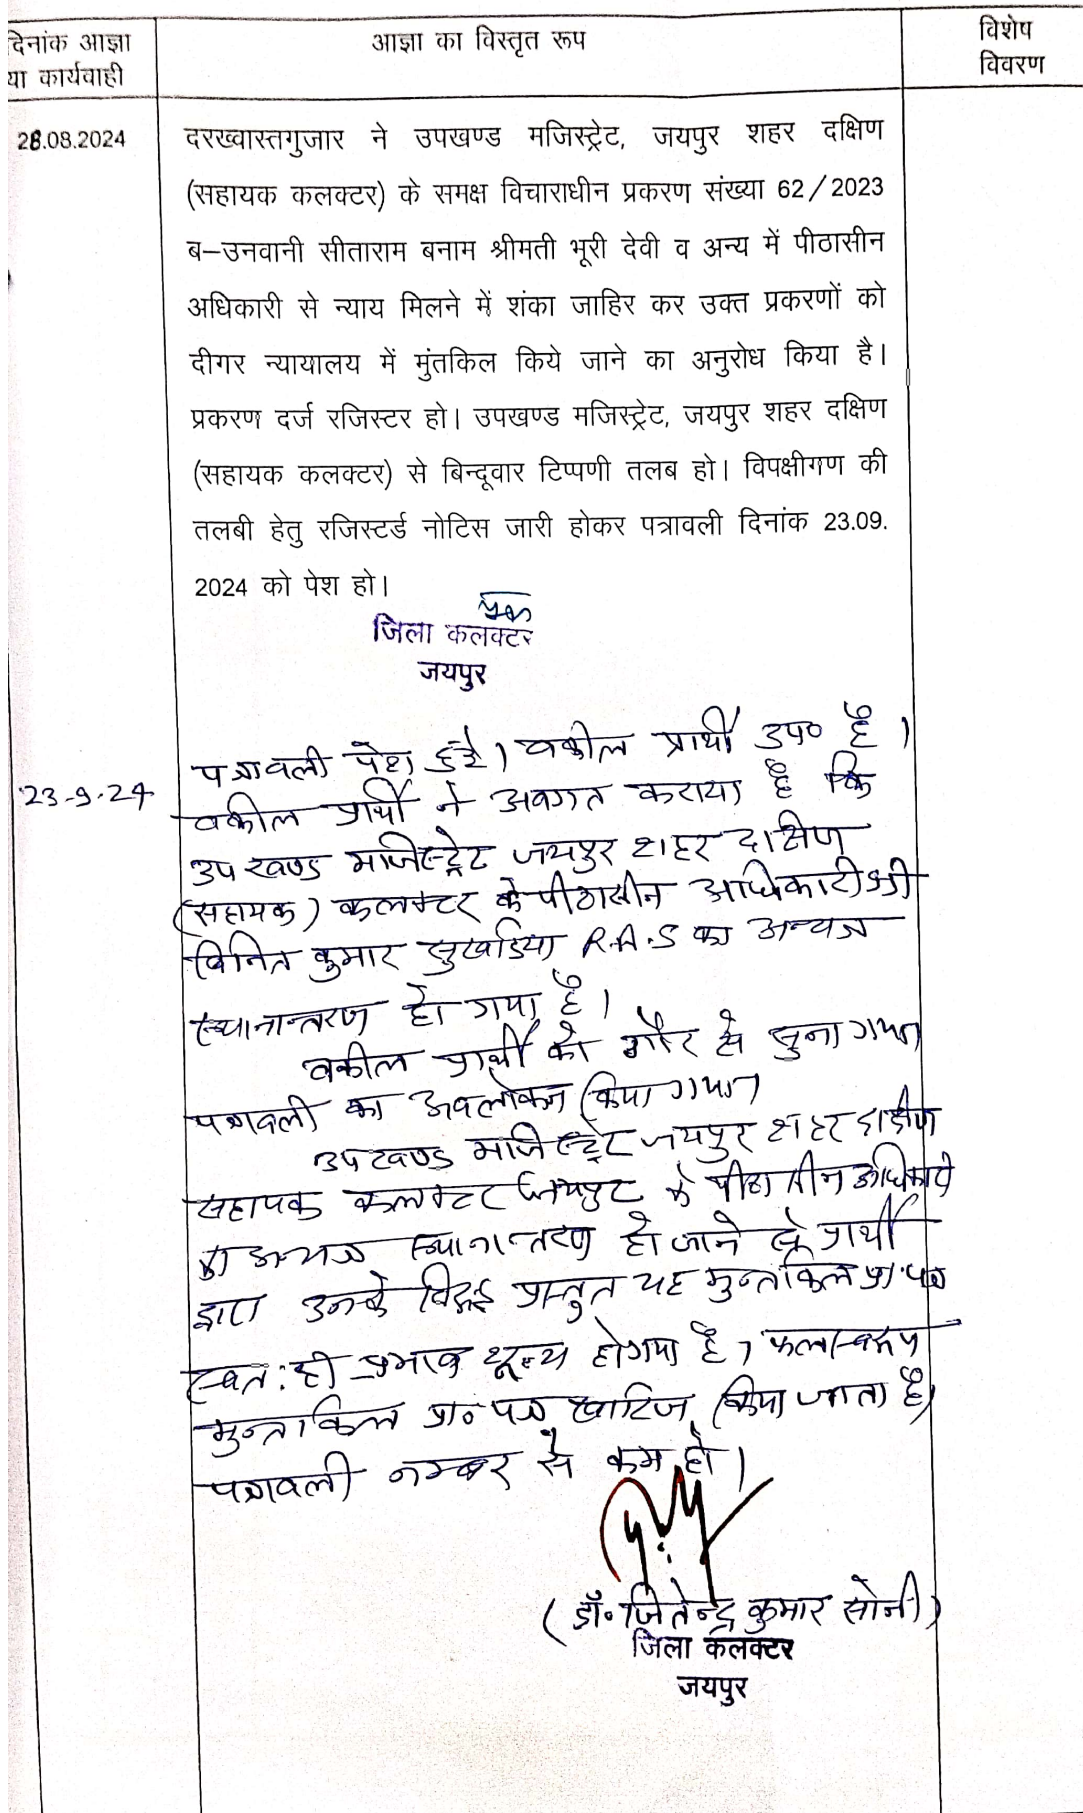 दिनांक आज्ञा
या कार्यवाही
आज्ञा का विस्तृत रूप
विशेष
विवरण
28.08.2024
दरख्वास्तगुजार ने उपखण्ड मजिस्ट्रेट, जयपुर शहर दक्षिण
(सहायक कलक्टर) के समक्ष विचाराधीन प्रकरण संख्या 62/2023
ब–उनवानी सीताराम बनाम श्रीमती भूरी देवी व अन्य में पीठासीन
अधिकारी से न्याय मिलने में शंका जाहिर कर उक्त प्रकरणों को
दीगर न्यायालय में मुंतकिल किये जाने का अनुरोध किया है।
प्रकरण दर्ज रजिस्टर हो। उपखण्ड मजिस्ट्रेट, जयपुर शहर दक्षिण
(सहायक कलक्टर) से बिन्दूवार टिप्पणी तलब हो। विपक्षीगण की
तलबी हेतु रजिस्टर्ड नोटिस जारी होकर पत्रावली दिनांक 23.09.
2024 को पेश हो।
जिला कलक्टर
जयपुर
23-9-24
पत्रावली पेश हुई। वकील प्रार्थी उप० है।
वकील प्रार्थी ने अवगत कराया है कि
उपखण्ड मजिस्ट्रेट जयपुर शहर दक्षिण
(सहायक) कलक्टर के पीठासीन अधिकारी श्री
विनित कुमार सुखाडिया R.A.S का अन्यत्र
स्थानान्तरण हो गया है।
वकील प्रार्थी को गौर से सुना गया
पत्रावली का अवलोकन किया गया
उपखण्ड मजिस्ट्रेट जयपुर शहर दक्षिण
सहायक कलक्टर जयपुर के पीठासीन अधिकारी
का अन्यत्र स्थानान्तरण हो जाने से प्रार्थी
द्वारा उनके विरूद्ध प्रस्तुत यह मुन्तकिल प्रा० पत्र
स्वत: ही प्रभाव शून्य हो गया है। फलस्वरूप
मुन्तकिल प्रा० पत्र खारिज किया जाता है।
पत्रावली नम्बर से कम हो।
(डॉ० जितेन्द्र कुमार सोनी)
जिला कलक्टर
जयपुर